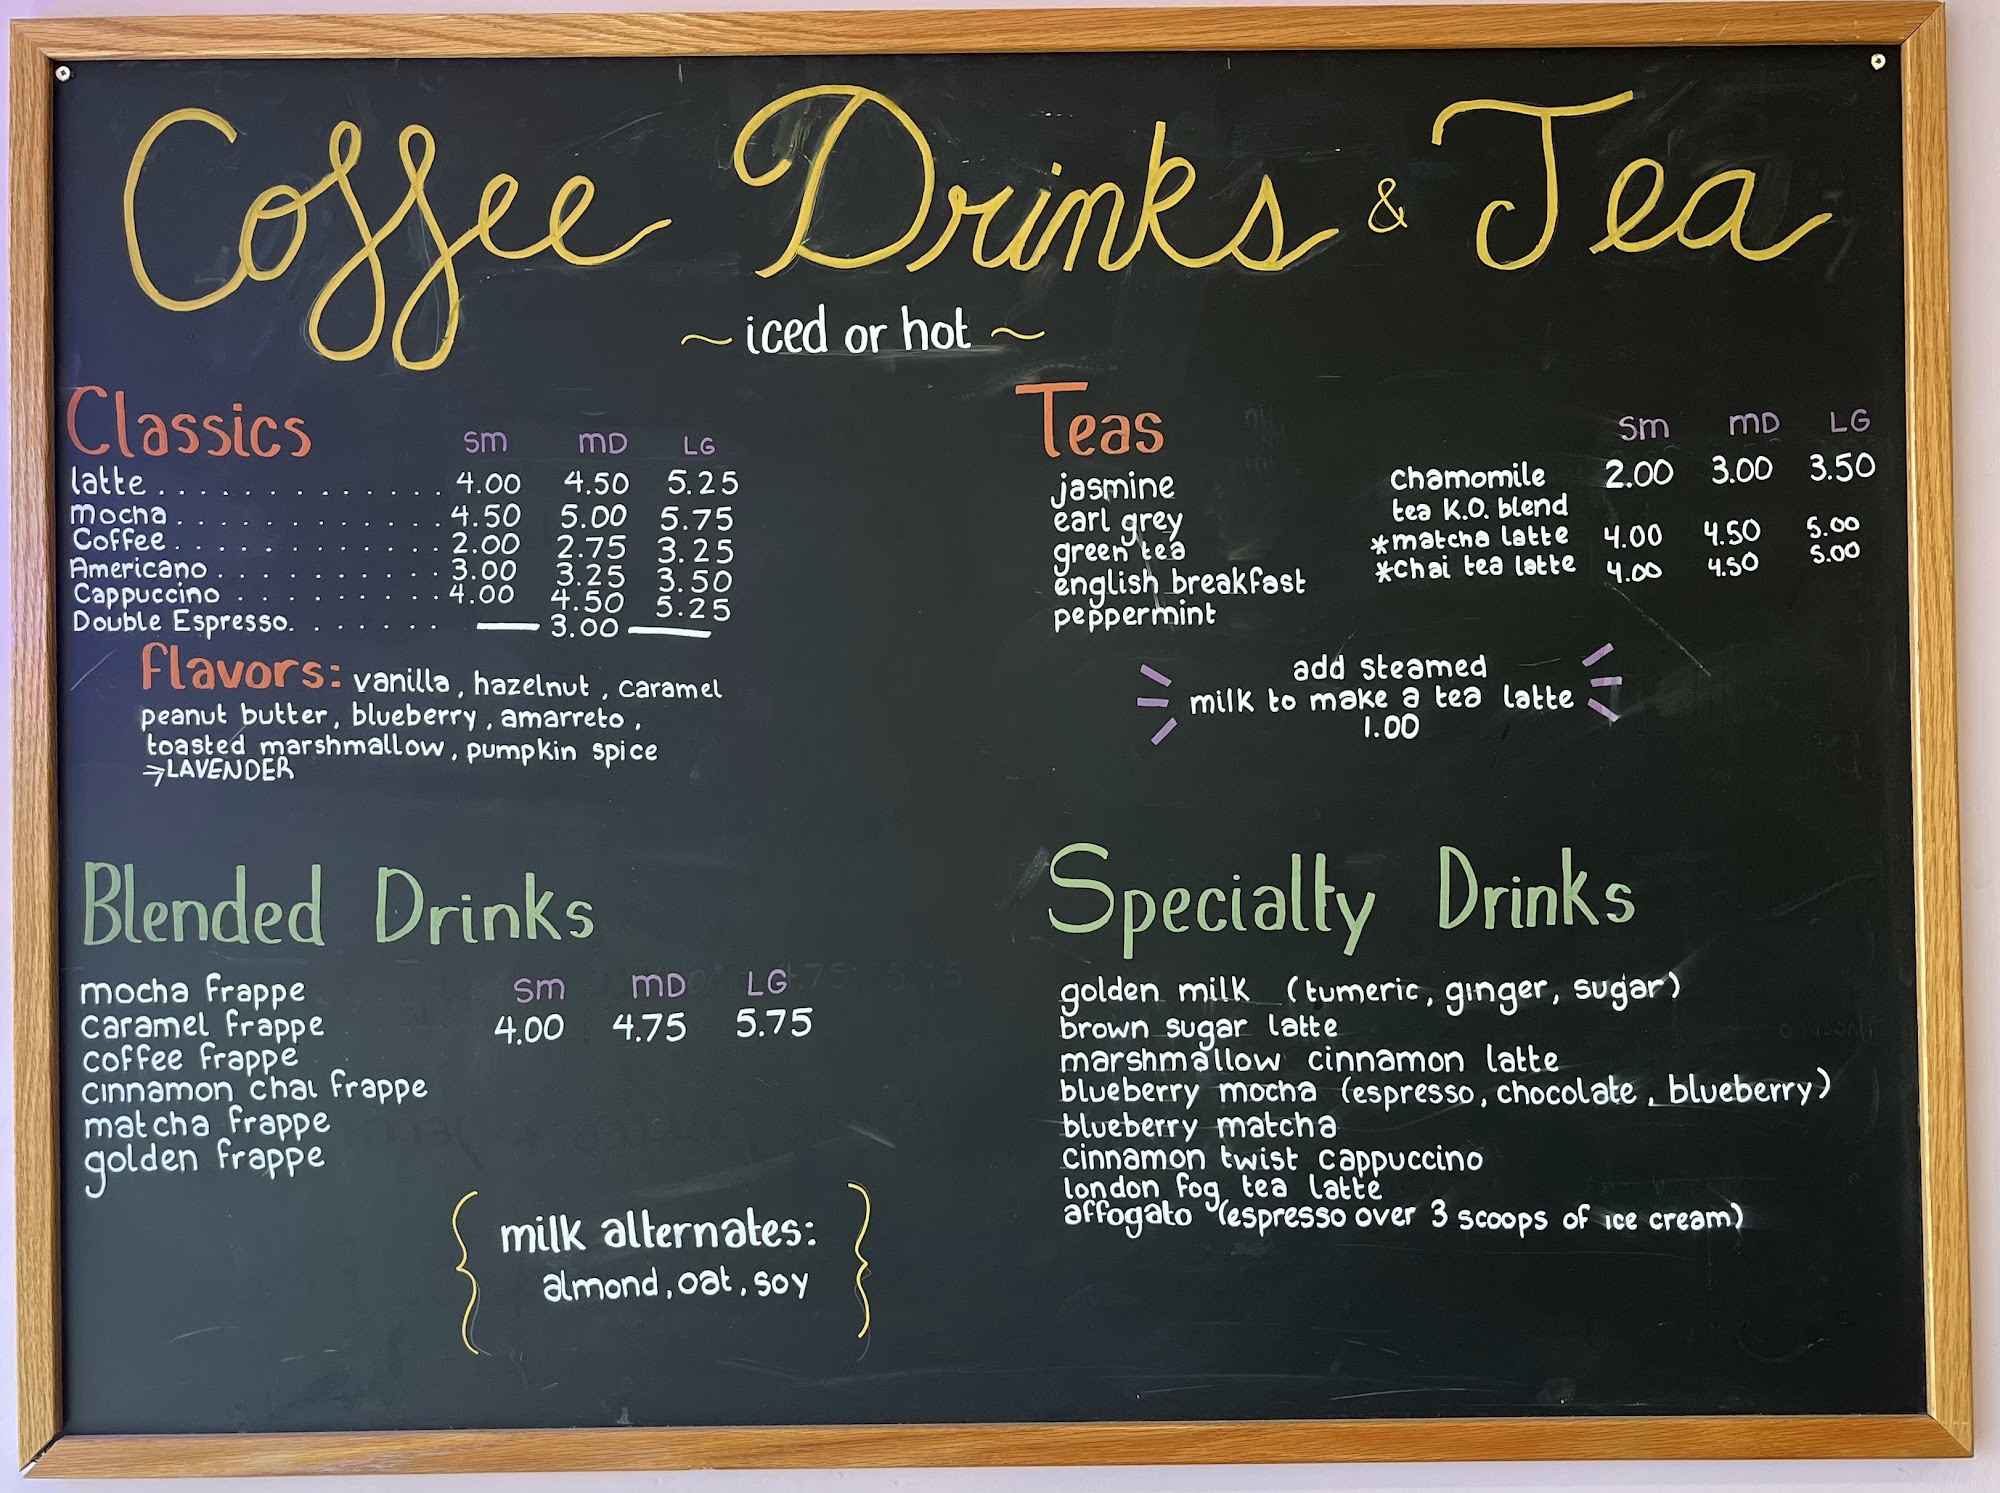 Coffee Drinks & Tea
~ iced or hot ~
Classics SM MD LG
latte 4.00 4.50 5.25
Mocha 4.50 5.00 5.75
Coffee 2.00 2.75 3.25
Americano 3.00 3.25 3.50
Cappuccino 4.00 4.50 5.25
Double Espresso 3.00
Flavors: vanilla, hazelnut, caramel
peanut butter, blueberry, amarreto,
toasted marshmallow, pumpkin spice
→LAVENDER
Teas SM MD LG
jasmine
earl grey
green tea
english breakfast
peppermint
chamomile 2.00 3.00 3.50
tea K.O. blend
*matcha latte 4.00 4.50 5.00
*chai tea latte 4.00 4.50 5.00
add steamed
milk to make a tea latte
1.00
Blended Drinks
SM MD LG
mocha frappe
caramel frappe 4.00 4.75 5.75
coffee frappe
cinnamon chai frappe
matcha frappe
golden frappe
milk alternates:
almond, oat, soy
Specialty Drinks
golden milk (tumeric, ginger, sugar)
brown sugar latte
marshmallow cinnamon latte
blueberry mocha (espresso, chocolate, blueberry)
blueberry matcha
cinnamon twist cappuccino
london fog tea latte
affogato (espresso over 3 scoops of ice cream)